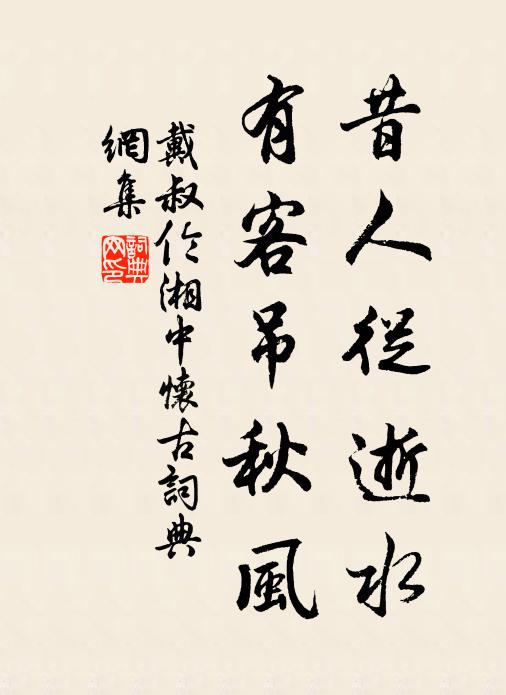 昔人從逝水
有客吊秋風
戴叔伦湘中懷古詞典
網集
詞典
网印